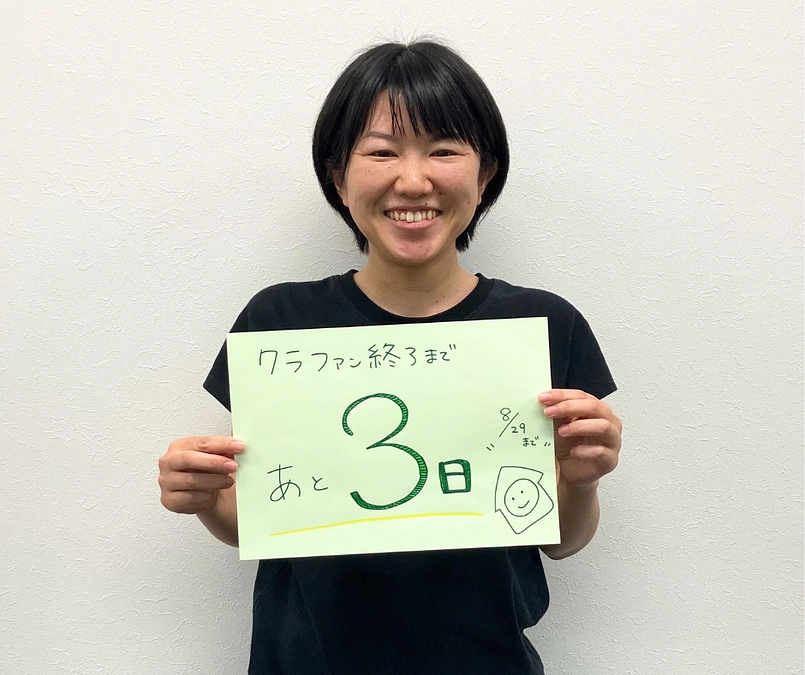 クラファン終了まで
あと3日
8/29
まで